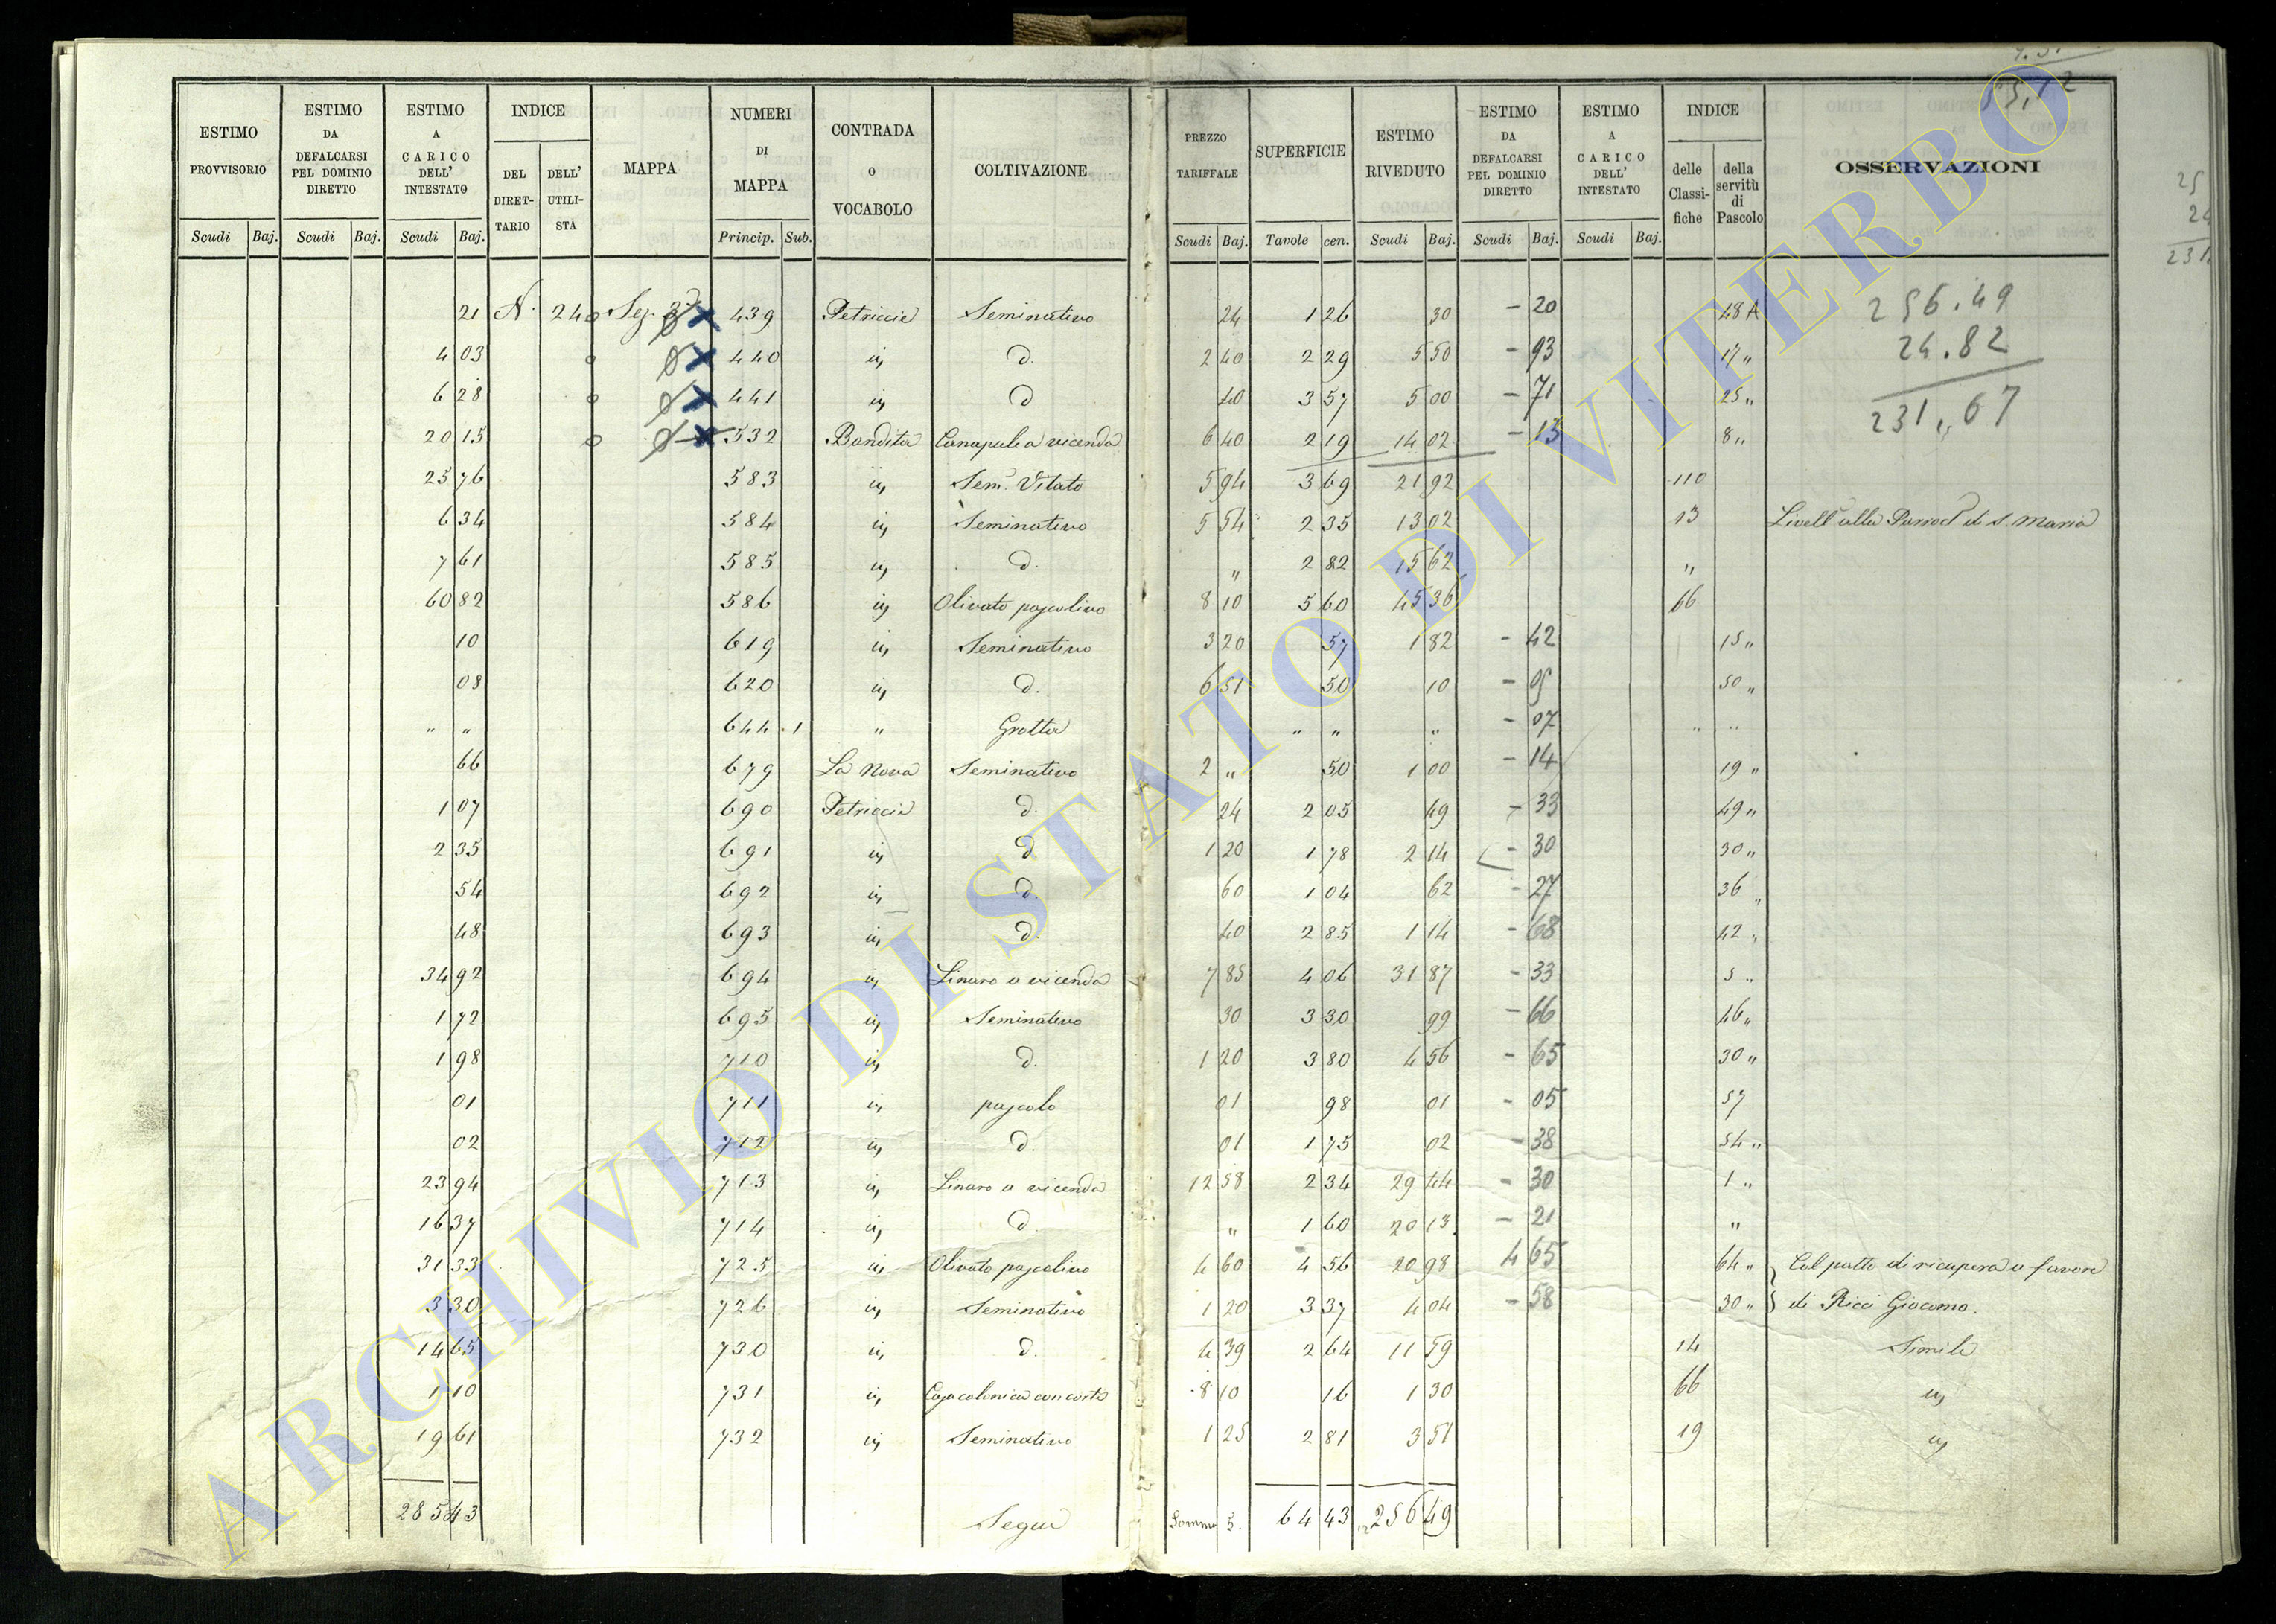 ESTIMO PROVVISORIO | ESTIMO DA DEFALCARSI PEL DOMINIO DIRETTO | ESTIMO A CARICO DELL' INTESTATO | INDICE | MAPPA | NUMERI DI MAPPA | CONTRADA O VOCABOLO | COLTIVAZIONE | PREZZO TARIFFALE | SUPERFICIE | ESTIMO RIVEDUTO | ESTIMO DA DEFALCARSI PEL DOMINIO DIRETTO | ESTIMO A CARICO DELL' INTESTATO | INDICE | OSSERVAZIONI
DEL DIRETTARIO | DELL' UTILISTA | delle Classifiche | della servitù di Pascolo
Scudi Baj. | Scudi Baj. | Scudi Baj. | Princip. Sub. | Scudi Baj. | Tavole cen. | Scudi Baj. | Scudi Baj. | Scudi Baj.
55,12
21 N. 240 Sez. 3ª X 439 Petriccie Seminativo 24 1 26 30 - 20 48 A 256.49
4 03 X 440 iij d. 2 40 2 29 5 50 - 93 17 " 24.82
6 28 X 441 iij d 40 3 57 5 00 - 71 25 " 231,67
20 15 X 532 Bandita Canapule a vicenda 6 40 2 19 14 02 - 13 8 "
25 76 583 iij Sem.º Vitato 5 94 3 69 21 92 110
6 34 584 iij Seminativo 5 54 2 35 13 02 13 Livell° alla Parroc° di S. Maria
7 61 585 iij d. " 2 82 15 62 "
60 82 586 iij Olivato pascolivo 8 10 5 60 45 36 66
10 619 iij Seminativo 3 20 57 1 82 - 42 15 "
08 620 iij d. 6 51 50 10 - 05 50 "
" " 644 1 " Grotta " " " - 07 " "
66 679 La Nova Seminativo 2 " 50 1 00 - 14 19 "
1 07 690 Petriccia d. 24 2 05 49 - 33 49 "
2 35 691 iij d 1 20 1 78 2 14 - 30 30 "
54 692 iij d. 60 1 04 62 - 27 36 "
48 693 iij d. 40 2 85 1 14 - 68 42 "
34 92 694 iij Linaro a vicenda 7 85 4 06 31 87 - 33 5 "
1 72 695 iij Seminativo 30 3 30 99 - 66 46 "
1 98 710 iij d. 1 20 3 80 4 56 - 65 30 "
01 711 iij pascolo 01 98 01 - 05 57
02 712 iij d. 01 1 75 02 - 38 54 "
23 94 713 iij Linaro a vicenda 12 58 2 34 29 44 - 30 1 "
16 37 714 iij d. " 1 60 20 13 - 21 "
31 33 725 iij Olivato pascolivo 4 60 4 56 20 98 4 65 64 " Col patto di ricupera a favore
3 30 726 iij Seminativo 1 20 3 37 4 04 - 58 30 " di Ricci Giacomo.
14 65 730 iij d. 4 39 2 64 11 59 14 Simile
1 10 731 iij Casa colonica con corte 8 10 16 1 30 66 iij
19 61 732 iij Seminativo 1 25 2 81 3 51 19 iij
285 43 Segue Somma S. 64 43 256 49
ARCHIVIO DI STATO DI VITERBO